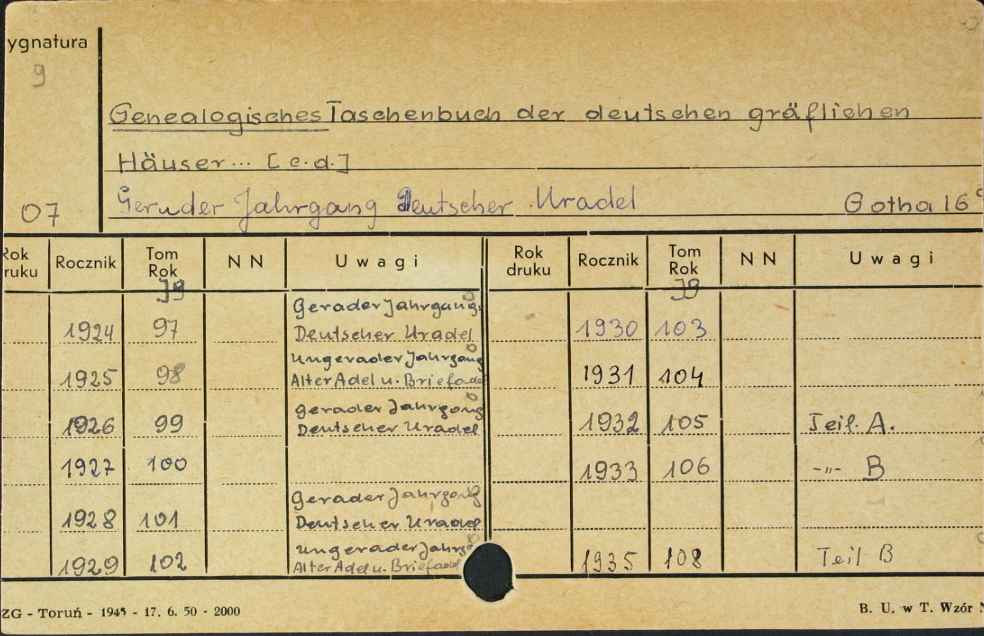 ygnatura
9
Genealogisches Taschenbuch der deutschen gräflichen
Häuser... [c.d.]
07 Geruder Jahrgang Deutscher Uradel Gotha 16°
Rok druku Rocznik Tom Rok NN Uwagi Rok druku Rocznik Tom Rok NN Uwagi
Jg Jg
1924 97 Gerader Jahrgang Deutscher Uradel 1930 103
1925 98 Ungerader Jahrgang Alter Adel u. Briefadel 1931 104
1926 99 Gerader Jahrgang Deutscher Uradel 1932 105 Teil. A.
1927 100 1933 106 -„- B
1928 101 Gerader Jahrgang Deutscher Uradel
1929 102 Ungerader Jahrg Alter Adel u. Briefadel 1935 108 Teil B
ZG - Toruń - 1945 - 17. 6. 50 - 2000 B. U. w T. Wzór N